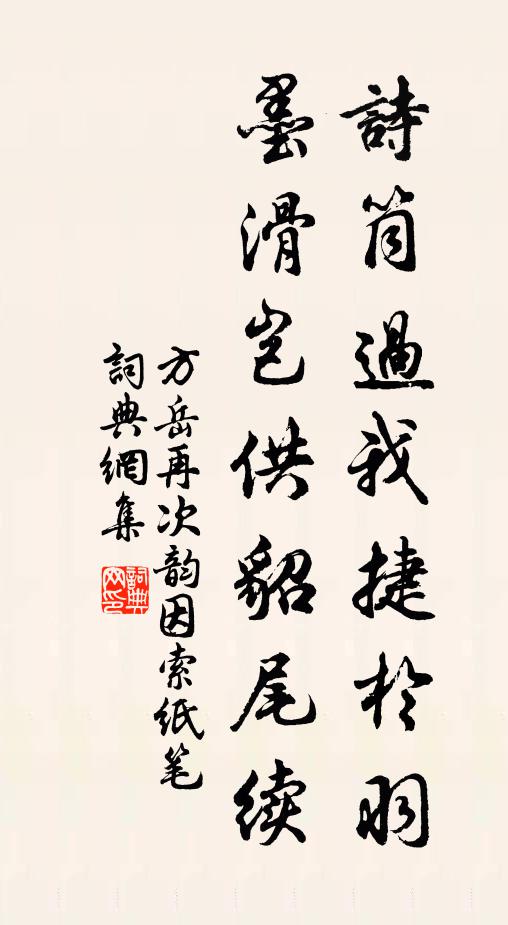 詩筒過我捷於羽
墨滑豈供貂尾续
方岳再次韵因索紙笔
詞典網集
詞典网印